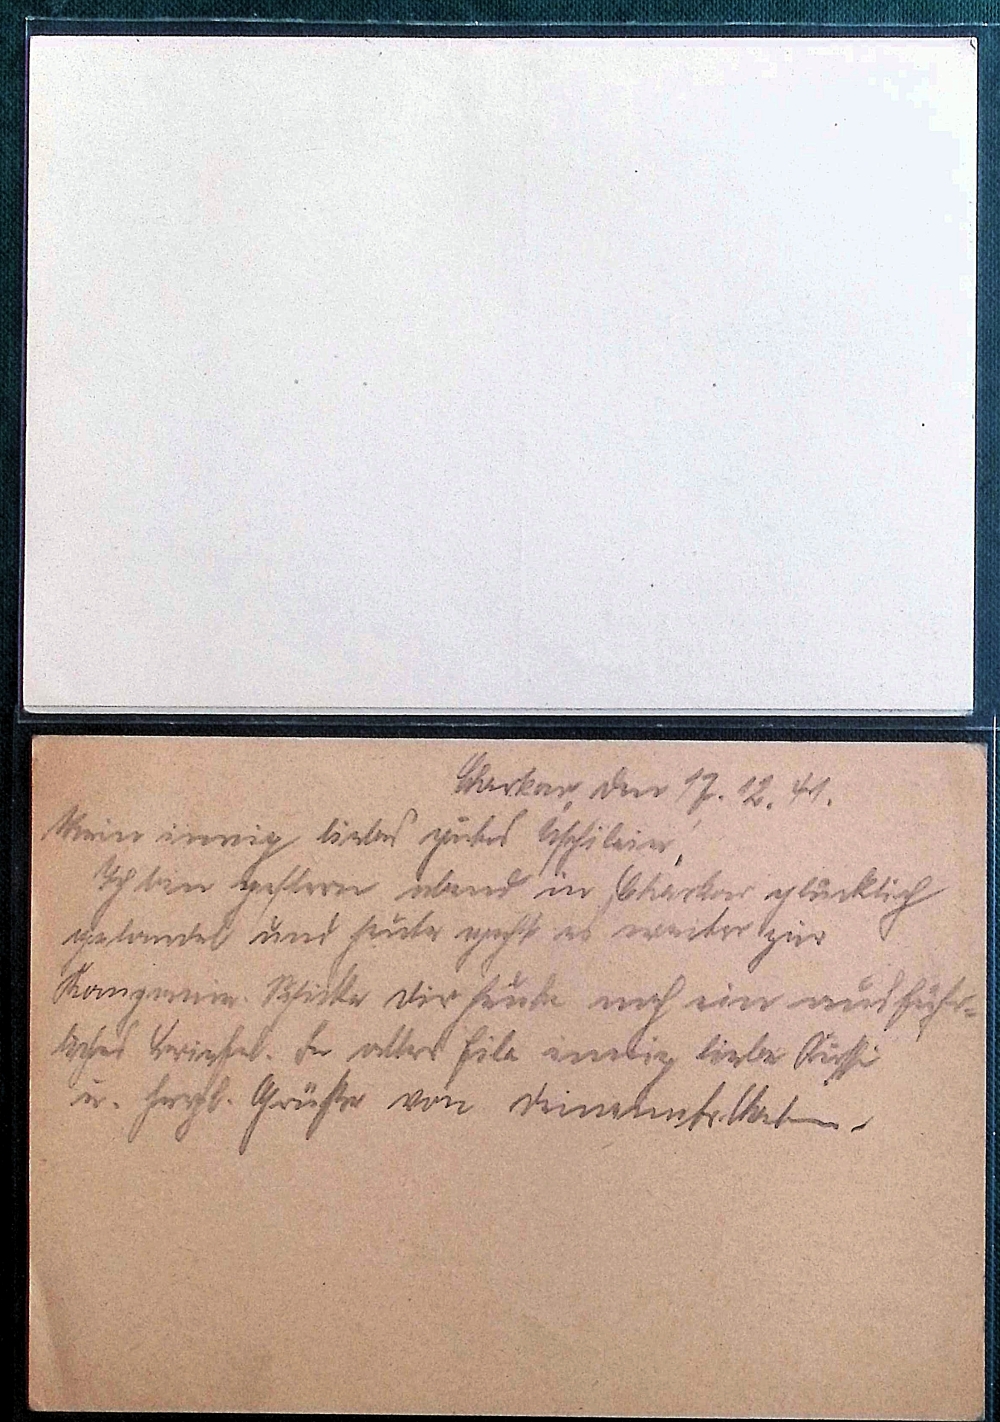 Charkow, den 17. 12. 41.
Mein innig liebes gutes
Ich bin gestern abend in Charkow glücklich
gelandet und heute geht es weiter zur
Kompanie. Schicke dir heute noch ein ausführ-
liches Brieferl. In aller Eile innig liebe Bussi
u. herzl. Grüße von deinem